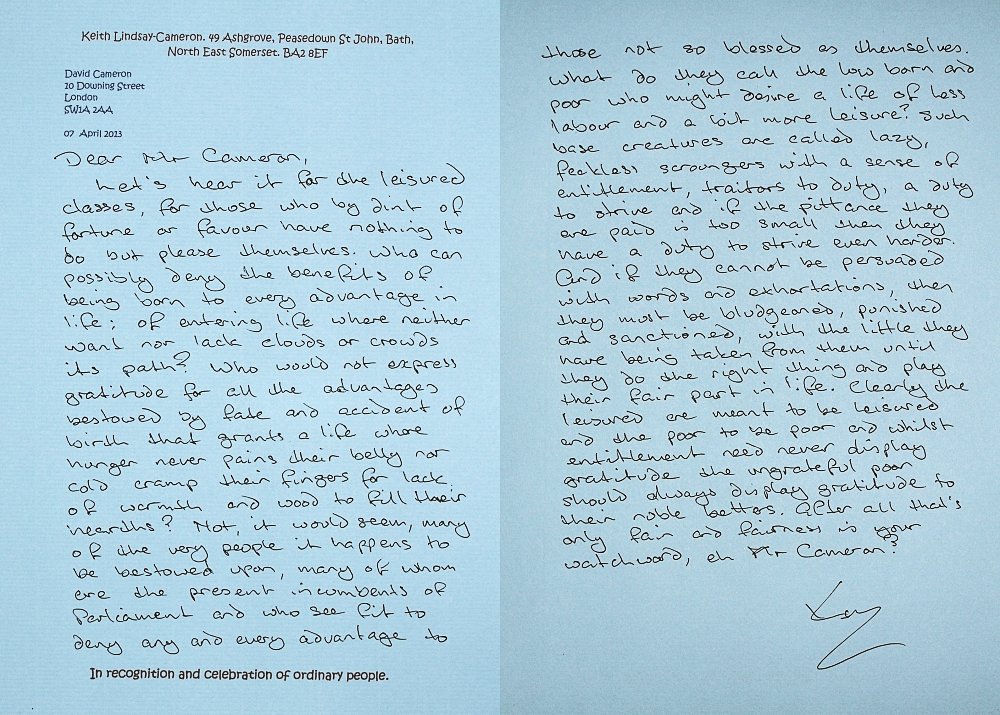 Keith Lindsay-Cameron. 49 Ashgrove, Peasedown St John, Bath,
North East Somerset. BA2 8EF
David Cameron
10 Downing Street
London
SW1A 2AA
07 April 2013
Dear Mr Cameron,
Let's hear it for the leisured
classes, for those who by dint of
fortune or favour have nothing to
do but please themselves. Who can
possibly deny the benefits of
being born to every advantage in
life; of entering life where neither
want nor lack clouds or crowds
its path? Who would not express
gratitude for all the advantages
bestowed by fate and accident of
birth that grants a life where
hunger never pains their belly nor
cold cramp their fingers for lack
of warmth and wood to fill their
hearths? Not, it would seem, many
of the very people it happens to
be bestowed upon, many of whom
are the present incumbents of
Parliament and who see fit to
deny any and every advantage to
In recognition and celebration of ordinary people.
those not so blessed as themselves.
What do they call the low born and
poor who might desire a life of less
labour and a bit more leisure? Such
base creatures are called lazy,
feckless scroungers with a sense of
entitlement, traitors to duty, a duty
to strive and if the pittance they
are paid is too small then they
have a duty to strive even harder.
And if they cannot be persuaded
with words and exhortations, then
they must be bludgeoned, punished
and sanctioned, with the little they
have being taken from them until
they do the right thing and play
their fair part in life. Clearly the
leisured are meant to be leisured
and the poor to be poor and whilst
entitlement need never display
gratitude the ungrateful poor
should always display gratitude to
their noble betters. After all that's
only fair and fairness is your
watchword, eh Mr Cameron?